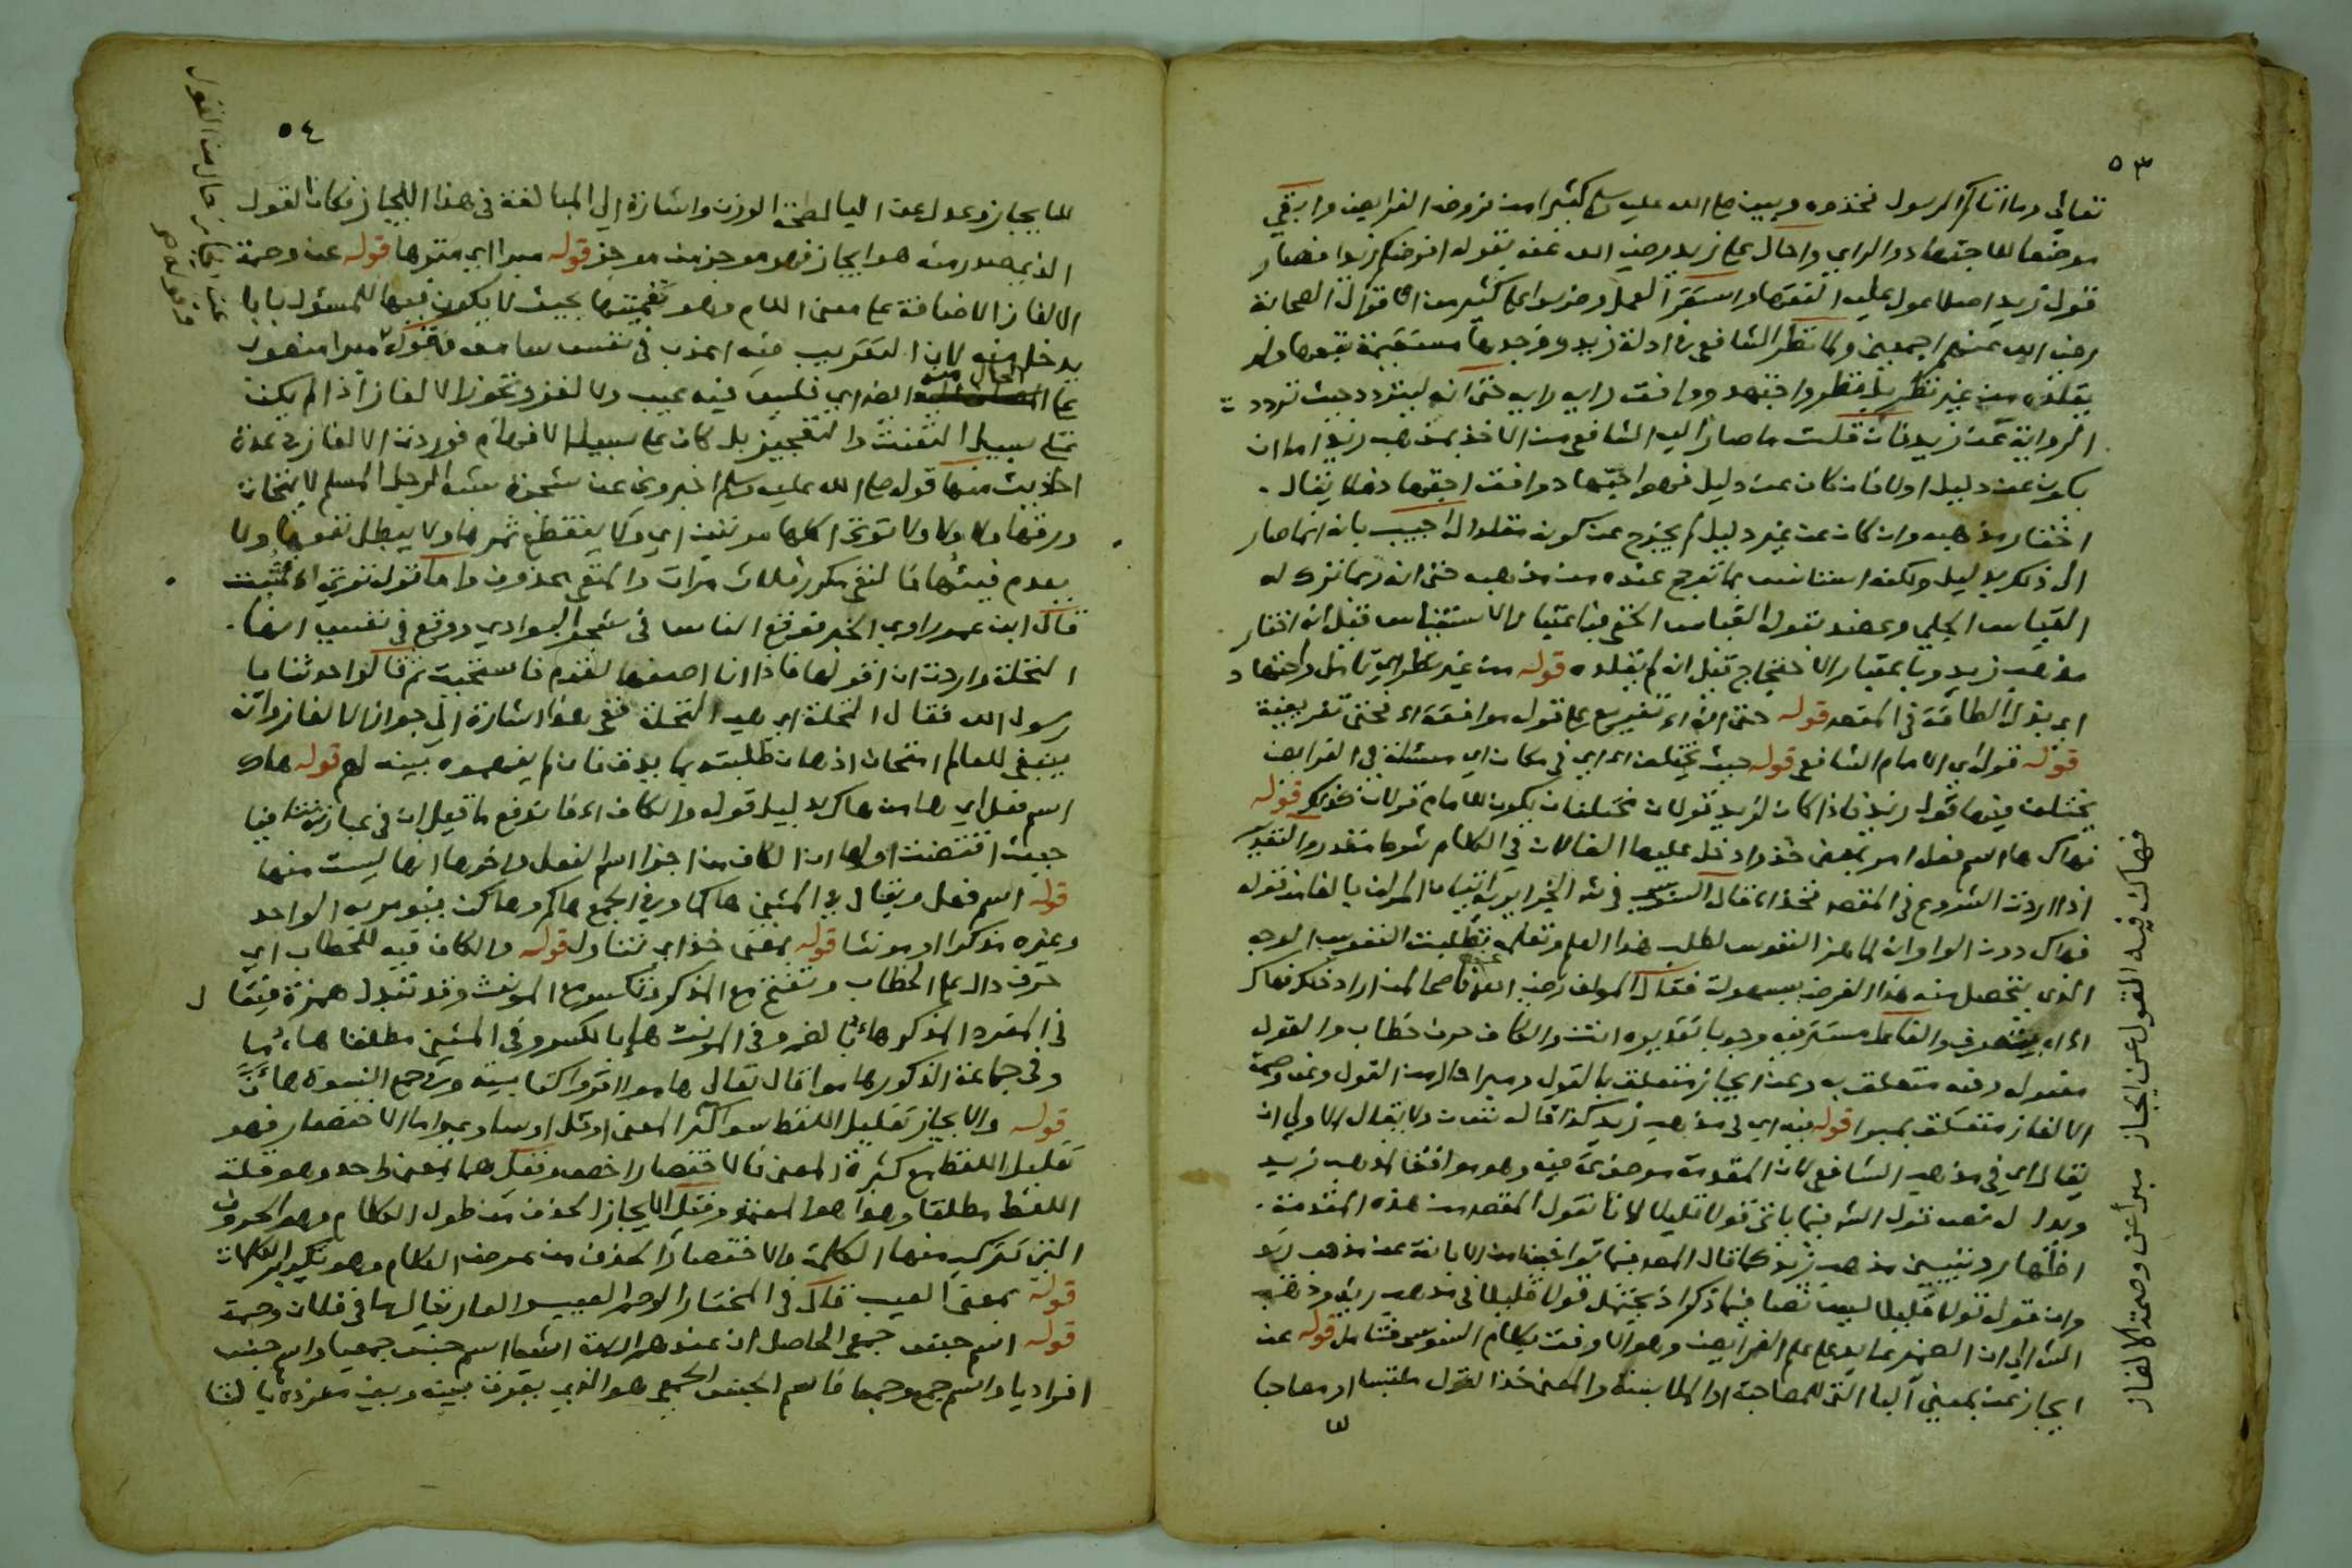 ٥٣
تعالى وما اتاكم الرسول فخذوه وبين صلى الله عليه وسلم كثيرا من فروض الفرايض وابقى
موضعا للاجتهاد والراي واحال على زيد رضي الله عنه بقوله افرضكم زيد فصار
قول زيد اصلا عول عليه الفقها واستقر العمل به على كثير من اقوال الصحابة
رضي الله عنهم اجمعين ولما نظر الشافعي في ادلة زيد ووجدها مستقيمة تبعها ولم
يقلده من غير نظر بل نظر واجتهد ووافق رايه رايه حتى انه ليتردد حيث تردد
الرواية عن زيد فان قلت ما صار اليه الشافعي من الاخذ بمذهب زيد اما ان
يكون عن دليل اولا فان كان عن دليل فهو اجتهاد وافق اجتهاد فلا يقال
اختار مذهبه وان كان عن غير دليل لم يخرج عن كونه مقلدا له اجيب بانه انما صار
الى ذلك بدليل ولكنه استانس بما ترجح عنده من مذهبه حتى انه ربما ترك له
القياس الجلي وعضد بقوله القياس الخفي فباعتبار الاستيناس قيل انه اختار
مذهب زيد وباعتبار الاحتجاج قيل انه لم يقلده قوله من غير نظر اي تامل واجتهاد
اي بذل الطاقة في المقصد قوله حتى انه اء تفريع على قوله موافقة اء فحتى تفريعية
قوله قول اي الامام الشافعي قوله حيث يختلف اء اي في مكان اي مسئلة في الفرايض
يختلف فيها قول زيد فاذا كان لزيد قولان مختلفان يكون للامام قولان كذلك قوله
فهاك ها اسم فعل امر بمعنى خذ وادخل عليها الفا لان في الكلام شرطا مقدرا والتقدير
اذا اردت الشروع في المقصد فخذ اء قال السنوسي في
فهاك دون الواو ان لما هز النفوس لطلب هذا العلم وتعلمه تطلبت النفوس الوجه
الذي يتحصل منه هذا الغرض بسهولة فقال المولف رضي الله عنه ناصحا لمن اراد ذلك فهاك
اء اه والفاعل مستتر فيه وجوبا تقديره انت والكاف حرف خطاب والقول
مفعول وفيه متعلق به وعن ايجاز متعلق بالقول ومبرا حال من القول وعن وصمة
الالغاز متعلق بمبرا قوله فيه اي في مذهب زيد كذا قال ولا يقال الاولى ان
يقال اي في مذهب الشافعي لان المقدمة موضوعة فيه وهو موافق لمذهب زيد
ويدل له قول الشارح فيما ياتي قولا قليلا لانا نقول المقصد من هذه المقدمة
اظهار وتبيين مذهب زيد كما قال المصنف فيما توخينا من الابانة عن مذهب زيد
وان قول قولا قليلا ليس نصا فيما ذكر اذ يحتمل قولا قليلا في مذهب زيد وذهب
الشارح الى ان الضمير عايد على علم الفرايض وهو الاوفق بكلام السنوسي فتامل قوله عن
ايجاز عن بمعنى البا التي للمصاحبة او الملابسة والمعنى خذ القول ملتبسا او مصاحبا
للا
فهاك فيه القول عن ايجاز مبرأ عن وصمة الالغاز
٥٤
للايجاز وعدل عن اليا لصحة الوزن واشارة الى المبالغة في هذا الايجاز فكان القول
الذي صدر منه هو ايجاز فهو موجز من موجز قوله مبرا اي منزها قوله عن وصمة
الالغاز الاضافة على معنى اللام وهو تعميتها بحيث لا يكون فيها للمسئول بابا
يدخل منه لان التقريب فيه اعذب في نفس سامعه فقوله مبرا منصوب
على الحال منه اء اي فليس فيه عيب ولا لغز وتجوز الالغاز اذا لم يكن
على سبيل التعنت والتعجيز بل كان على سبيل الافهام فوردت الالغاز في عدة
احاديث منها قوله صلى الله عليه وسلم اخبروني عن شجرة مثل الرجل المسلم لا يتحات
ورقها ولا ولا ولا توتي اكلها مرتين اي ولا ينقطع ثمرها ولا يبطل نفعها ولا
يعدم فيئها فالنفي مكرر ثلاث مرات والمنفي محذوف واما قوله توتي اء مثبت
قال ابن عمر راوي الخبر فوقع الناس في شجر البوادي ووقع في نفسي انها
النخلة واردت ان اقولها فاذا انا اصغر القوم فاستحيت ثم قالوا حدثنا يا
رسول الله فقال النخلة اي هي النخلة ففي هذا اشارة الى جواز الالغاز وانه
ينبغي للعالم امتحان اذهان طلبته بما يدق فان لم يفهموه بينه لهم قوله هاك
اسم فعل اي ها من هاك بدليل قوله والكاف اء فاندفع ما قيل ان في عبارته تنافيا
حيث اقتضت اولها ان الكاف من اجزا اسم الفعل واخرها انها ليست منها
قوله اسم فعل ويقال في المثنى هاكما وفي الجمع هاكم وهاكن فيومر به الواحد
وغيره مذكرا او مونثا قوله بمعنى خذ اي تناول قوله والكاف فيه للخطاب اي
حرف دال على الخطاب وتفتح مع المذكر وتكسر مع المونث وقد تبدل همزة فيقال
في المفرد المذكر هاء وفي المونث هاء بالكسر وفي المثنى مطلقا هاؤما
وفي جماعة الذكور هاؤموا قال تعالى هاؤم اقرؤا كتابيه وفي جمع النسوة هاؤن
قوله والايجاز تقليل اللفظ سوا كثر المعنى او قل او ساوى واما الاختصار فهو
تقليل اللفظ مع كثرة المعنى فالاختصار اخص وقيل هما بمعنى واحد وهو قلة
اللفظ مطلقا وهذا هو المعتمد وقيل الايجاز الحذف من طول الكلام وهو الحروف
التي تتركب منها الكلمة والاختصار الحذف من عرض الكلام وهو تكرير الكلمات
قوله بمعنى العيب قال في المختار الوصم العيب والعار يقال ما في فلان وصمة
قوله اسم جنس جمعي الحاصل ان عندهم اسم جنس جمعيا واسم جنس
افراديا واسم جمع وجمعا فاسم الجنس الجمعي هو الذي يفرق بينه وبين مفرده بالتا